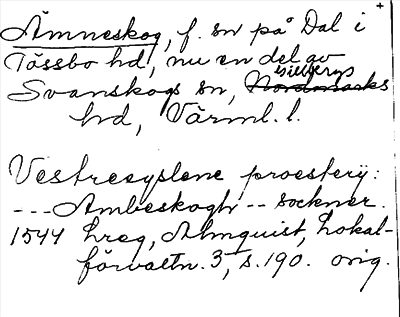 Ämneskog, f. sn på Dal i
Tössbo hd, nu en del av
Svanskogs sn, Gillbergs
hd, Värml. l.
Vestresyslene proesterij:
--- Ambeskogh -- sockner.
1544 hreg, Almquist, Lokal-
förvaltn. 3, s. 190. orig.